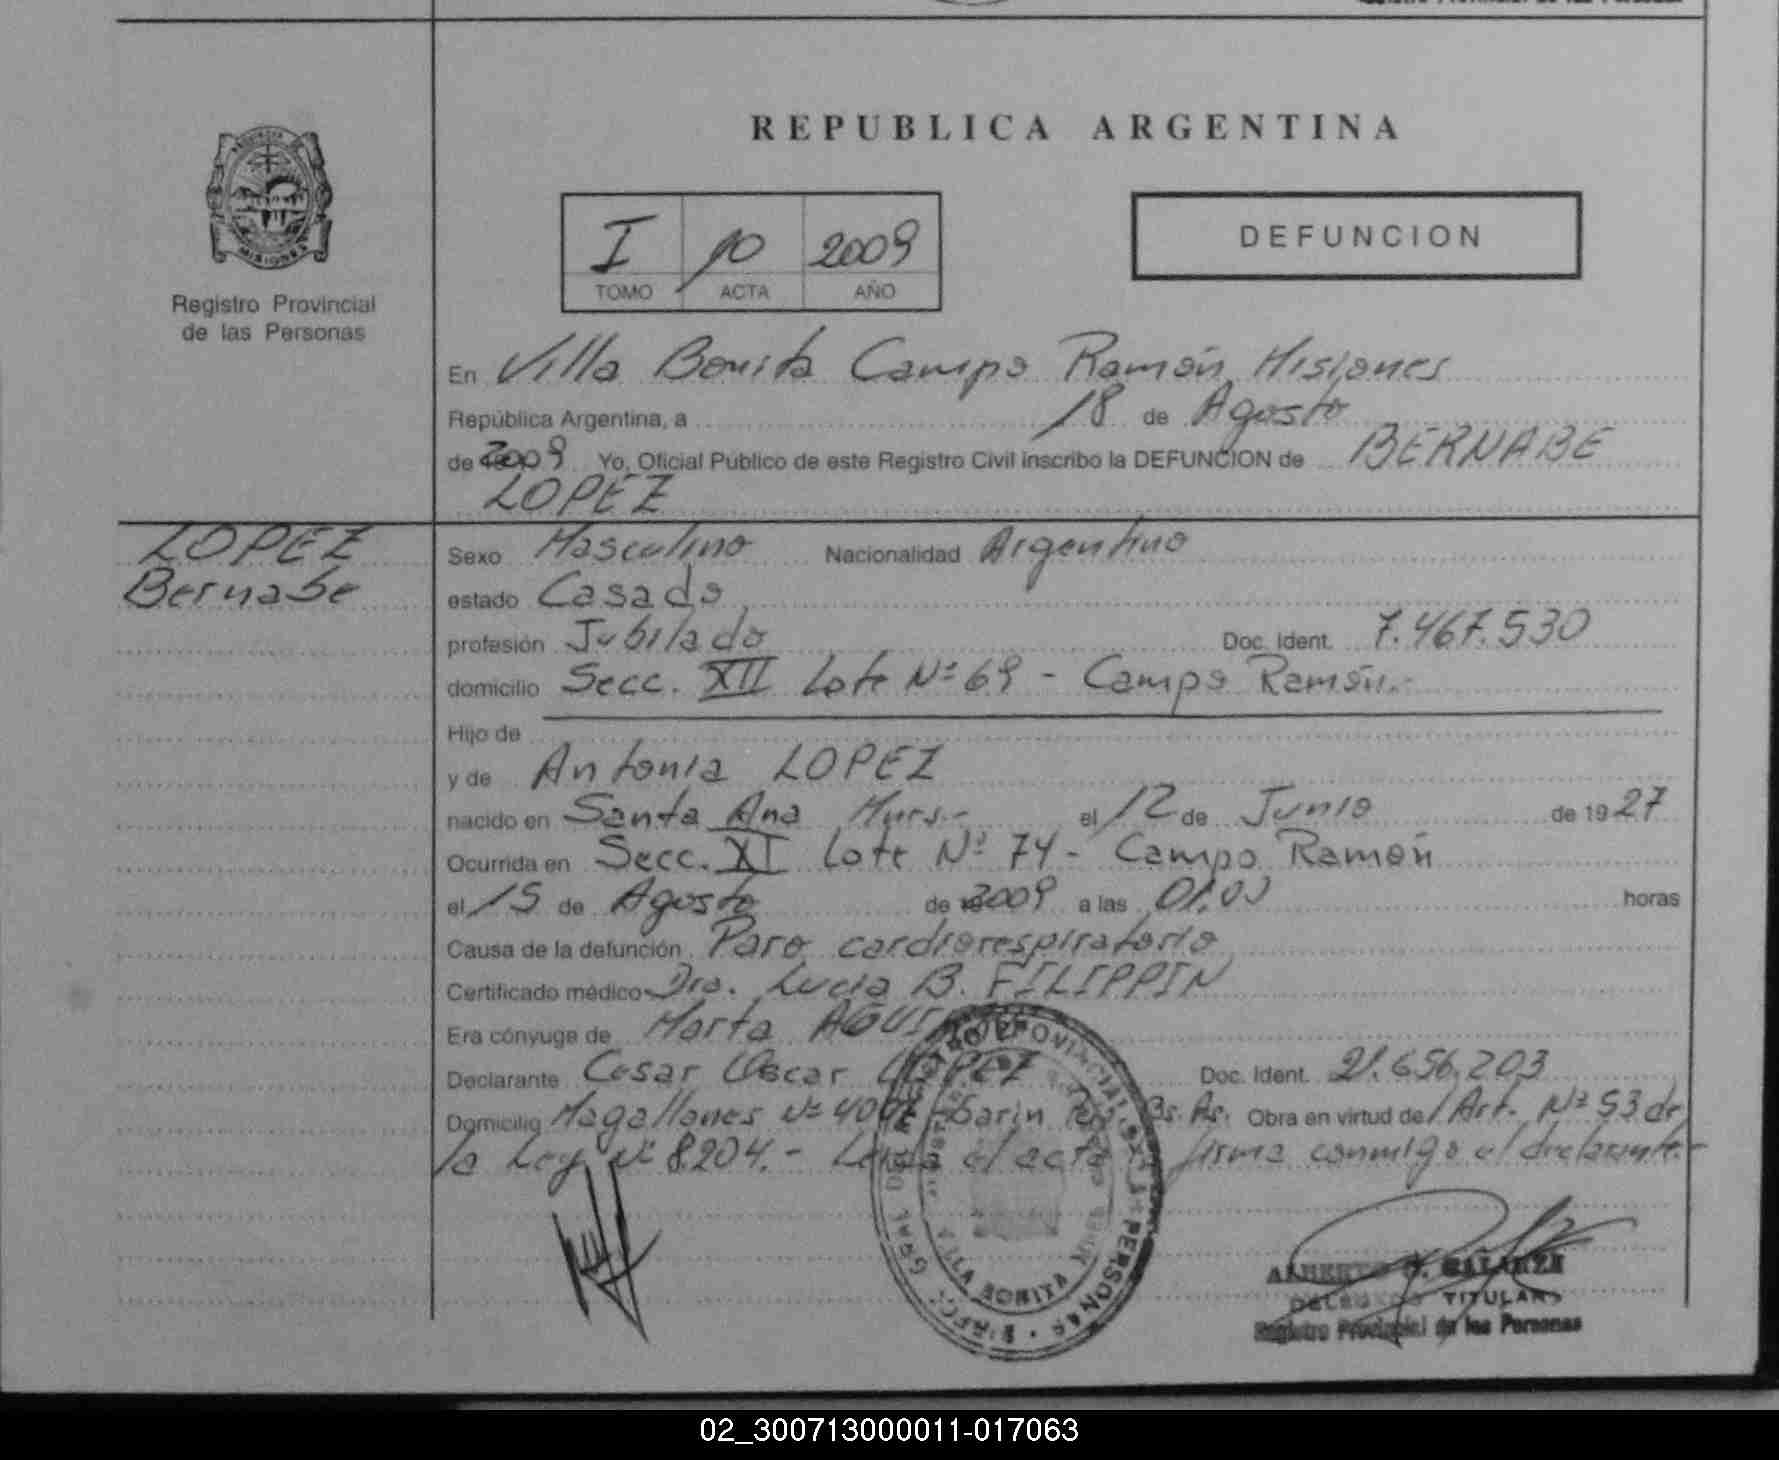 REPUBLICA ARGENTINA
PROVINCIA DE
MISIONES
Registro Provincial
de las Personas
I 10 2009
TOMO ACTA AÑO
DEFUNCION
En Villa Bonita Campo Ramón Misiones
República Argentina, a 18 de Agosto
de 2009 Yo, Oficial Público de este Registro Civil inscribo la DEFUNCION de BERNABE
LOPEZ
LOPEZ
Bernabe
Sexo Masculino Nacionalidad Argentino
estado Casado
profesión Jubilado Doc. Ident. 7.467.530
domicilio Secc. XII Lote Nº 69 - Campo Ramón.-
Hijo de
y de Antonia LOPEZ
nacido en Santa Ana el 12 de Junio de 1927
Ocurrida en Secc. XI Lote Nº 74 - Campo Ramón
el 15 de Agosto de 2009 a las 01.00 horas
Causa de la defunción Paro cardiorespiratorio
Certificado médico Dra. Lucia B. FILIPPIN
Era cónyuge de Marta
Declarante Cesar Oscar LOPEZ Doc. Ident. 21.656.203
Domicilio Magallanes Nº Garin Bs. As. Obra en virtud del Art. Nº 53 de
la Ley Nº 8204.- el acta firma conmigo el declarante.-
VILLA BONITA
DELEGADO TITULAR
Registro Provincial de las Personas
02_300713000011-017063